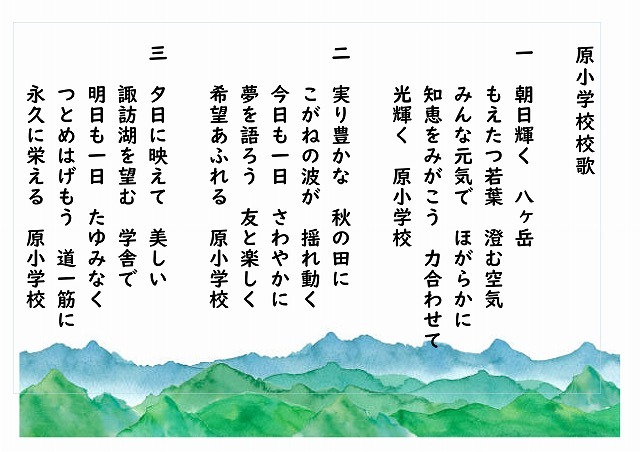 原小学校校歌
一 朝日輝く 八ヶ岳
もえたつ若葉 澄む空気
みんな元気で ほがらかに
知恵をみがこう 力合わせて
光輝く 原小学校
二 実り豊かな 秋の田に
こがねの波が 揺れ動く
今日も一日 さわやかに
夢を語ろう 友と楽しく
希望あふれる 原小学校
三 夕日に映えて 美しい
諏訪湖を望む 学舎で
明日も一日 たゆみなく
つとめはげもう 道一筋に
永久に栄える 原小学校